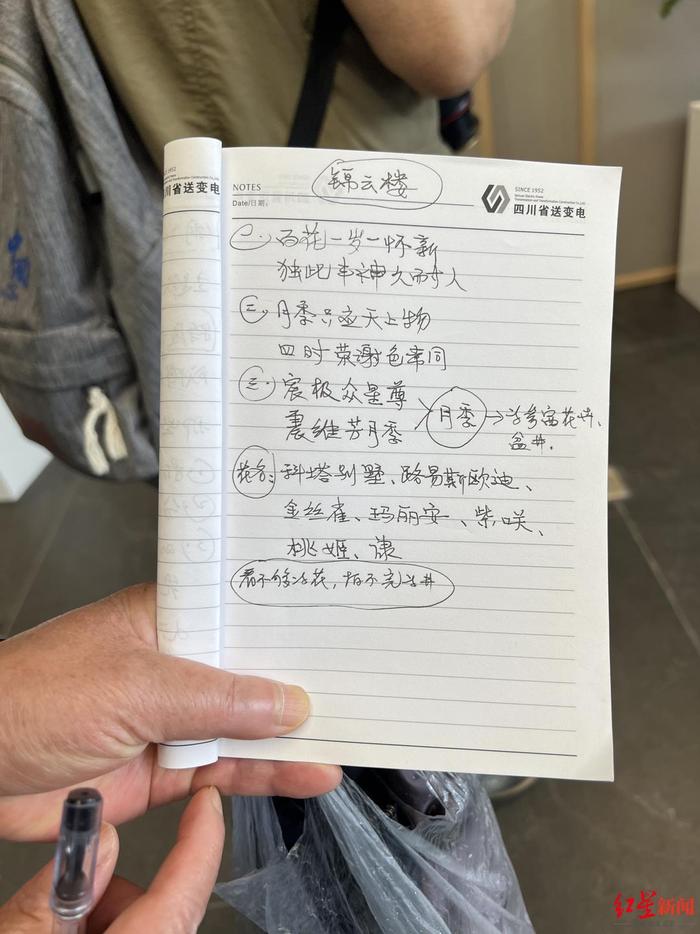 SINCE 1952
四川省送变电
NOTES
Date/日期:
锦云楼
SINCE 1952
四川省送变电
一. 百花一岁一怀新
独此丰神久耐人
二. 月季只应天上物
四时荣谢色常同
三. 宸极众星尊
震维芳月季
月季
花卉、
盆井.
花名: 科塔别墅、路易斯欧迪、
金丝雀、玛丽安、紫咲、
桃姬、谦
看不够 花, 拍不完
中国
红星新闻